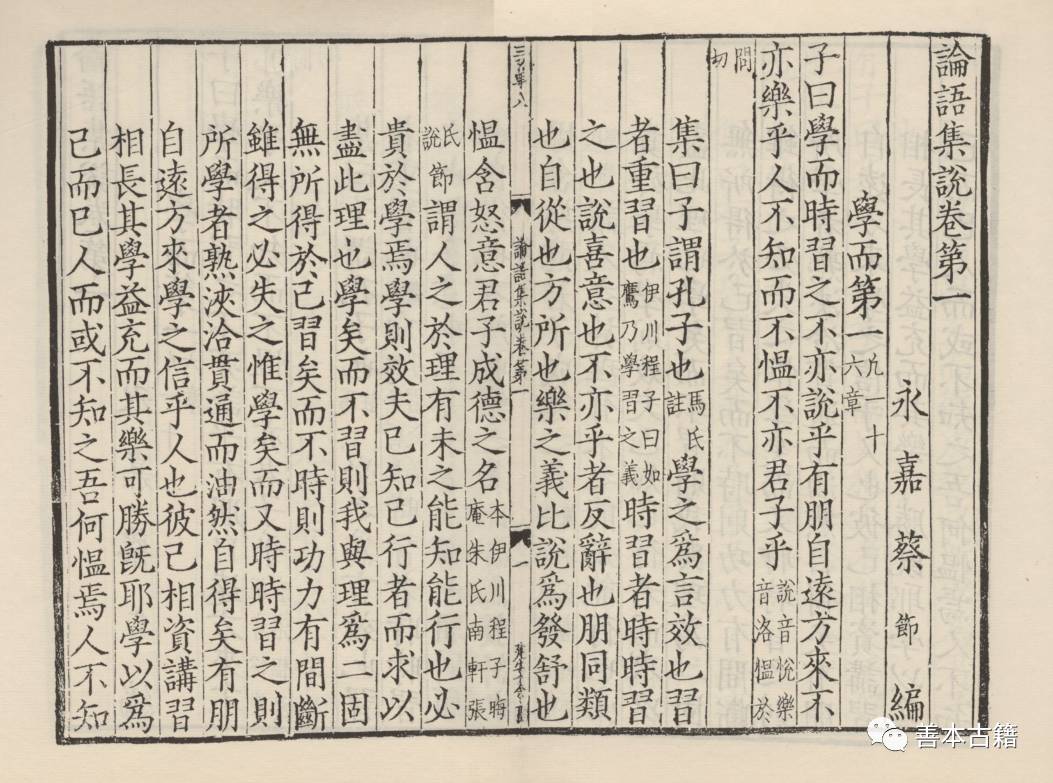 論語集說卷第一
永嘉蔡節編
學而第一凡一十六章
子曰學而時習之不亦說乎有朋自遠方來不
亦樂乎人不知而不慍不亦君子乎說音悅樂音洛慍於
問切
集曰子謂孔子也馬氏註學之爲言效也習
者重習也伊川程子曰如鷹乃學習之義時習者時時習
之也說喜意也不亦乎者反辭也朋同類
也自從也方所也樂之義比說爲發舒也
論語集說卷第一
一
慍含怒意君子成德之名本伊川程子晦庵朱氏南軒張
氏說節謂人之於理有未之能知能行也必
貴於學焉學則效夫已知已行者而求以
盡此理也學矣而不習則我與理爲二固
無所得於己習矣而不時則功力有間斷
雖得之必失之惟學矣而又時時習之則
所學者熟浹洽貫通而油然自得矣有朋
自遠方來學之信乎人也彼己相資講習
相長其學益充而其樂可勝旣耶學以爲
己而已人而或不知之吾何慍焉人不知
善本古籍